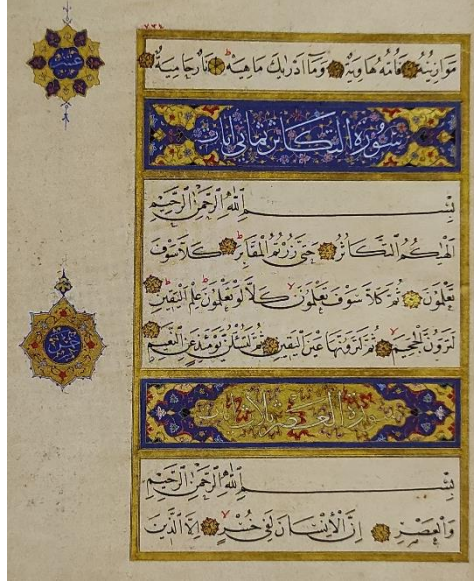 مَوَازِينُهُ فَأُمُّهُ هَاوِيَةٌ وَمَا أَدْرَيكَ مَاهِيَهْ نَارٌ حَامِيَةٌ
سُورَةُ التَّكَاثُرِ ثَمَانِي آيَاتٍ
بِسْمِ اللّٰهِ الرَّحْمٰنِ الرَّحِيمِ
أَلْهٰكُمُ التَّكَاثُرُ حَتّٰى زُرْتُمُ الْمَقَابِرَ كَلَّا سَوْفَ
تَعْلَمُونَ ثُمَّ كَلَّا سَوْفَ تَعْلَمُونَ كَلَّا لَوْ تَعْلَمُونَ عِلْمَ الْيَقِينِ
لَتَرَوُنَّ الْجَحِيمَ ثُمَّ لَتَرَوُنَّهَا عَيْنَ الْيَقِينِ ثُمَّ لَتُسْئَلُنَّ يَوْمَئِذٍ عَنِ النَّعِيمِ
سُورَةُ الْعَصْرِ
بِسْمِ اللّٰهِ الرَّحْمٰنِ الرَّحِيمِ
وَالْعَصْرِ إِنَّ الْإِنْسَانَ لَفِي خُسْرٍ إِلَّا الَّذِينَ
عشر
خمس